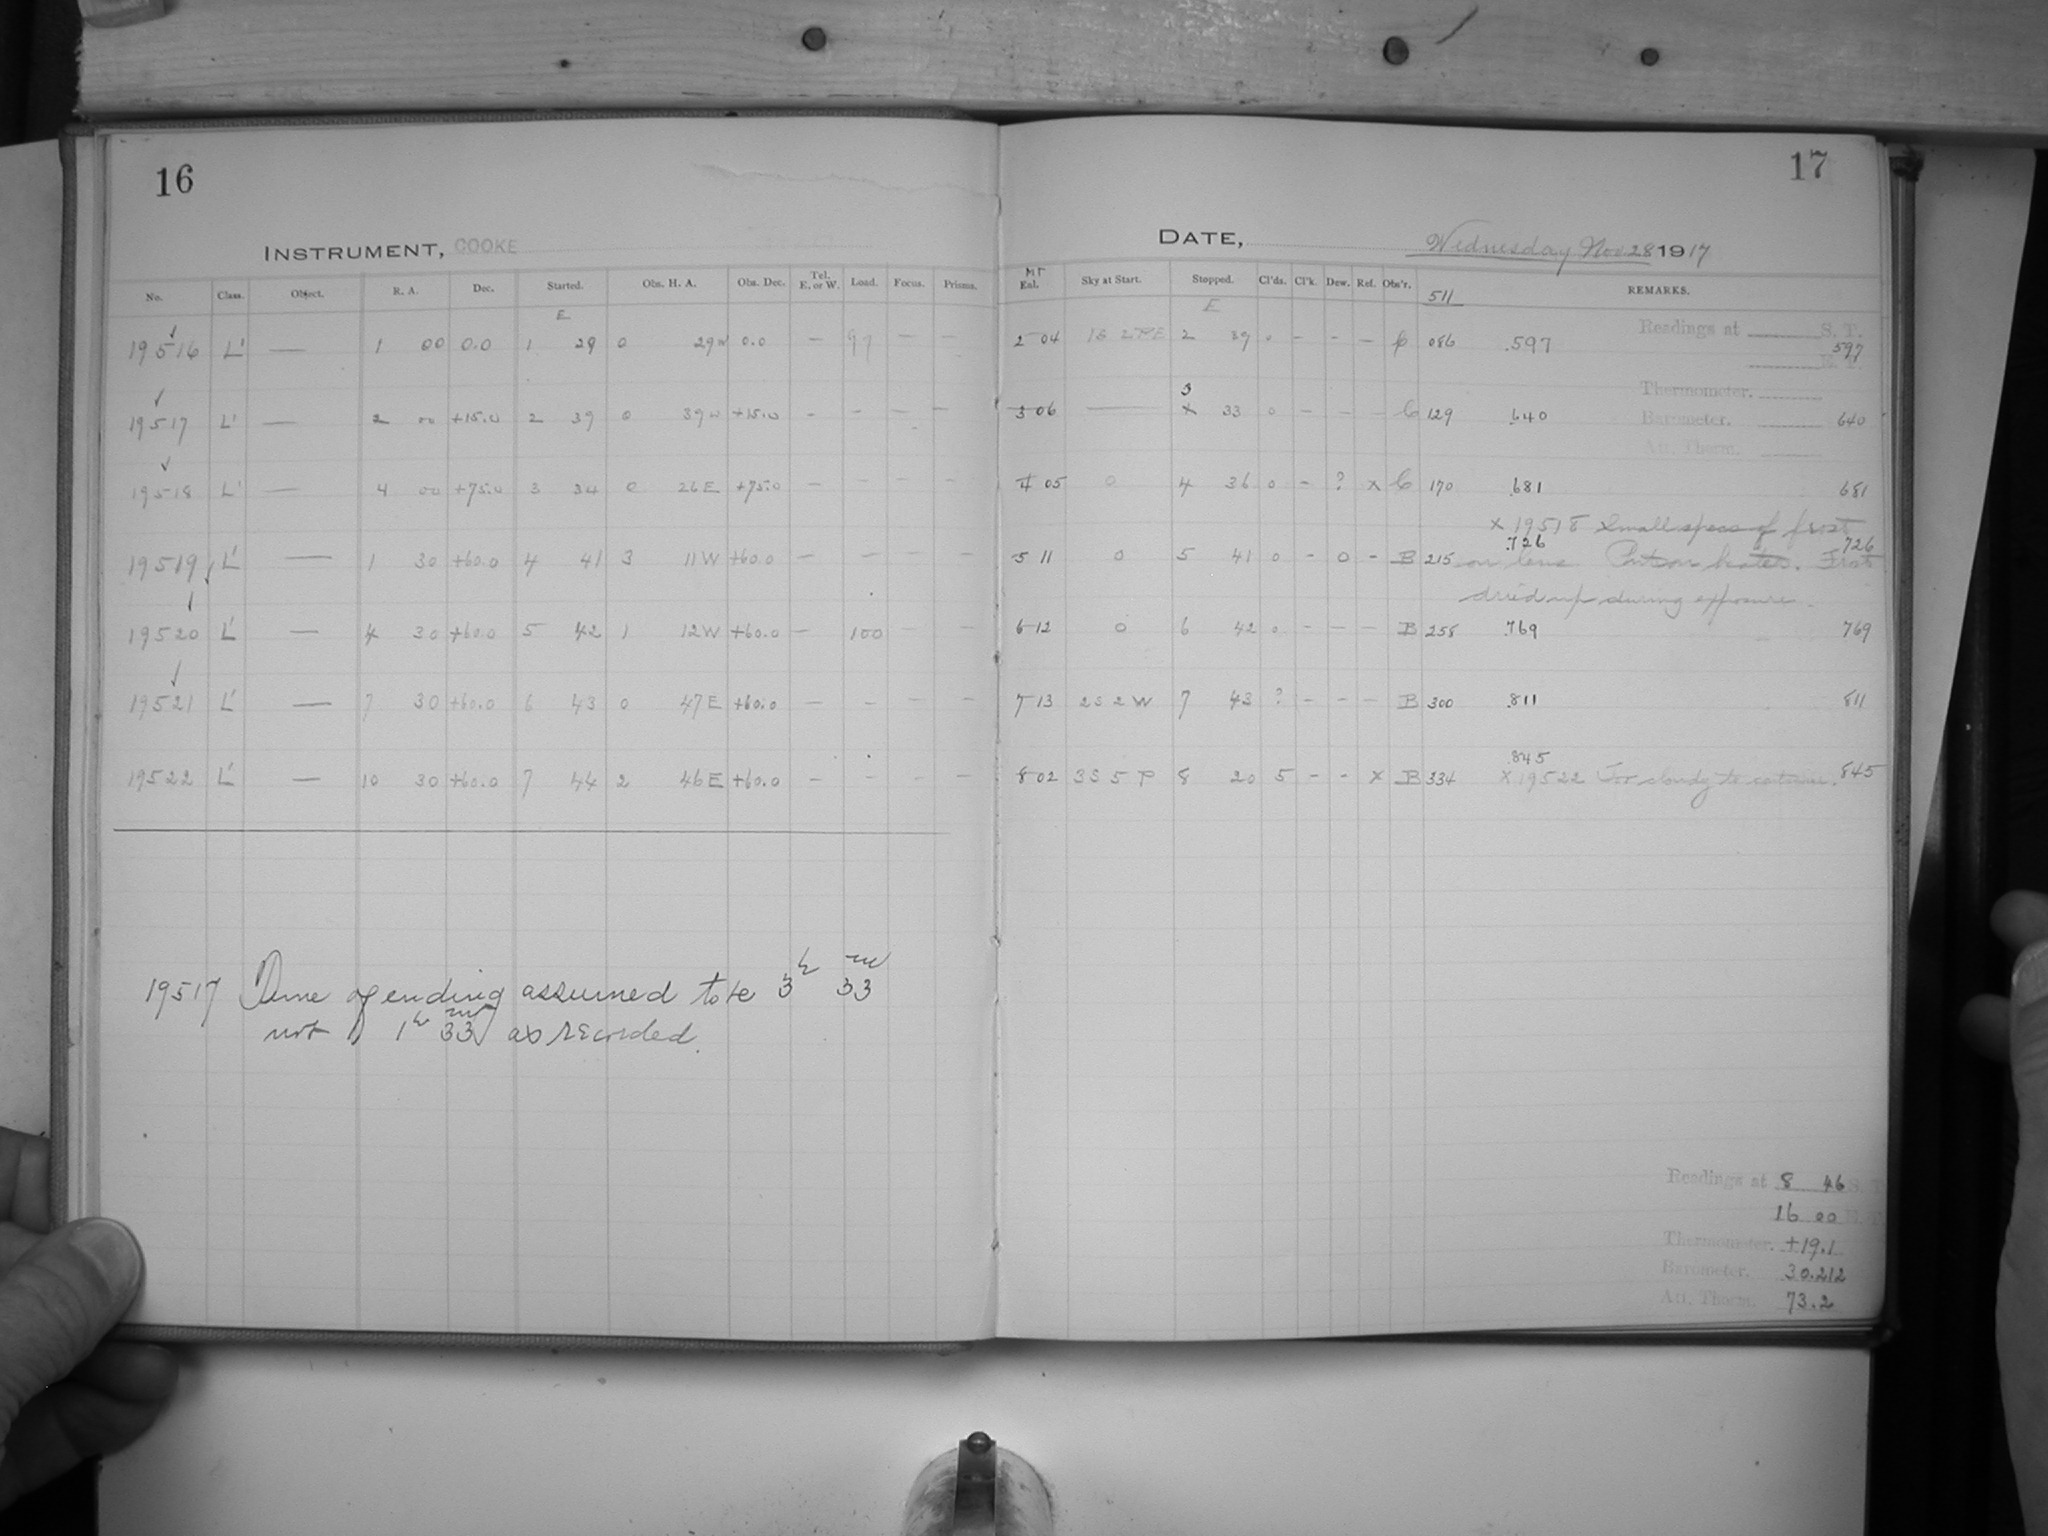 16
INSTRUMENT, COOKE
No. Class. Object. R. A. Dec. Started. Obs. H. A. Obs. Dec. Tel. E. or W. Load. Focus. Prisms.
E
19516 L' — 1 00 0.0 1 29 0 29W 0.0 — 97 — —
19517 L' — 2 00 +15.0 2 39 0 39W +15.0 — — — —
19518 L' — 4 00 +75.0 3 34 0 26E +75.0 — — — —
19519 L' — 1 30 +60.0 4 41 3 11W +60.0 — — — —
19520 L' — 4 30 +60.0 5 42 1 12W +60.0 — 100 — —
19521 L' — 7 30 +60.0 6 43 0 47E +60.0 — — — —
19522 L' — 10 30 +60.0 7 44 2 46E +60.0 — — — —
19517 Time of ending assumed to be 3h 33m
not 1h 33m as recorded.
17
DATE, Wednesday Nov. 28 1917
MT
Eql. Sky at Start. Stopped. Cl'ds. Cl'k. Dew. Ref. Obs'r. 511 REMARKS.
E
Readings at S. T.
2 04 1S 2 PE 2 39 0 — — — C 086 .597 597
Thermometer.
3
3 06 — x 33 0 — — — C 129 .640 Barometer. 640
Att. Therm.
4 05 0 4 36 0 — ? x C 170 .681 681
x 19518 Small specs of frost
.726 726
5 11 0 5 41 0 — 0 — B 215 on lens Put on heater. Frost
dried up during exposure.
6 12 0 6 42 0 — — — B 258 .769 769
7 13 2S 2 W 7 43 ? — — — B 300 .811 811
.845
8 02 3S 5 P 8 20 5 — — x B 334 x 19522 Too cloudy to continue. 845
Readings at 8 46 S. T.
16 00 E. T.
Thermometer. +19.1
Barometer. 30.212
Att. Therm. 73.2